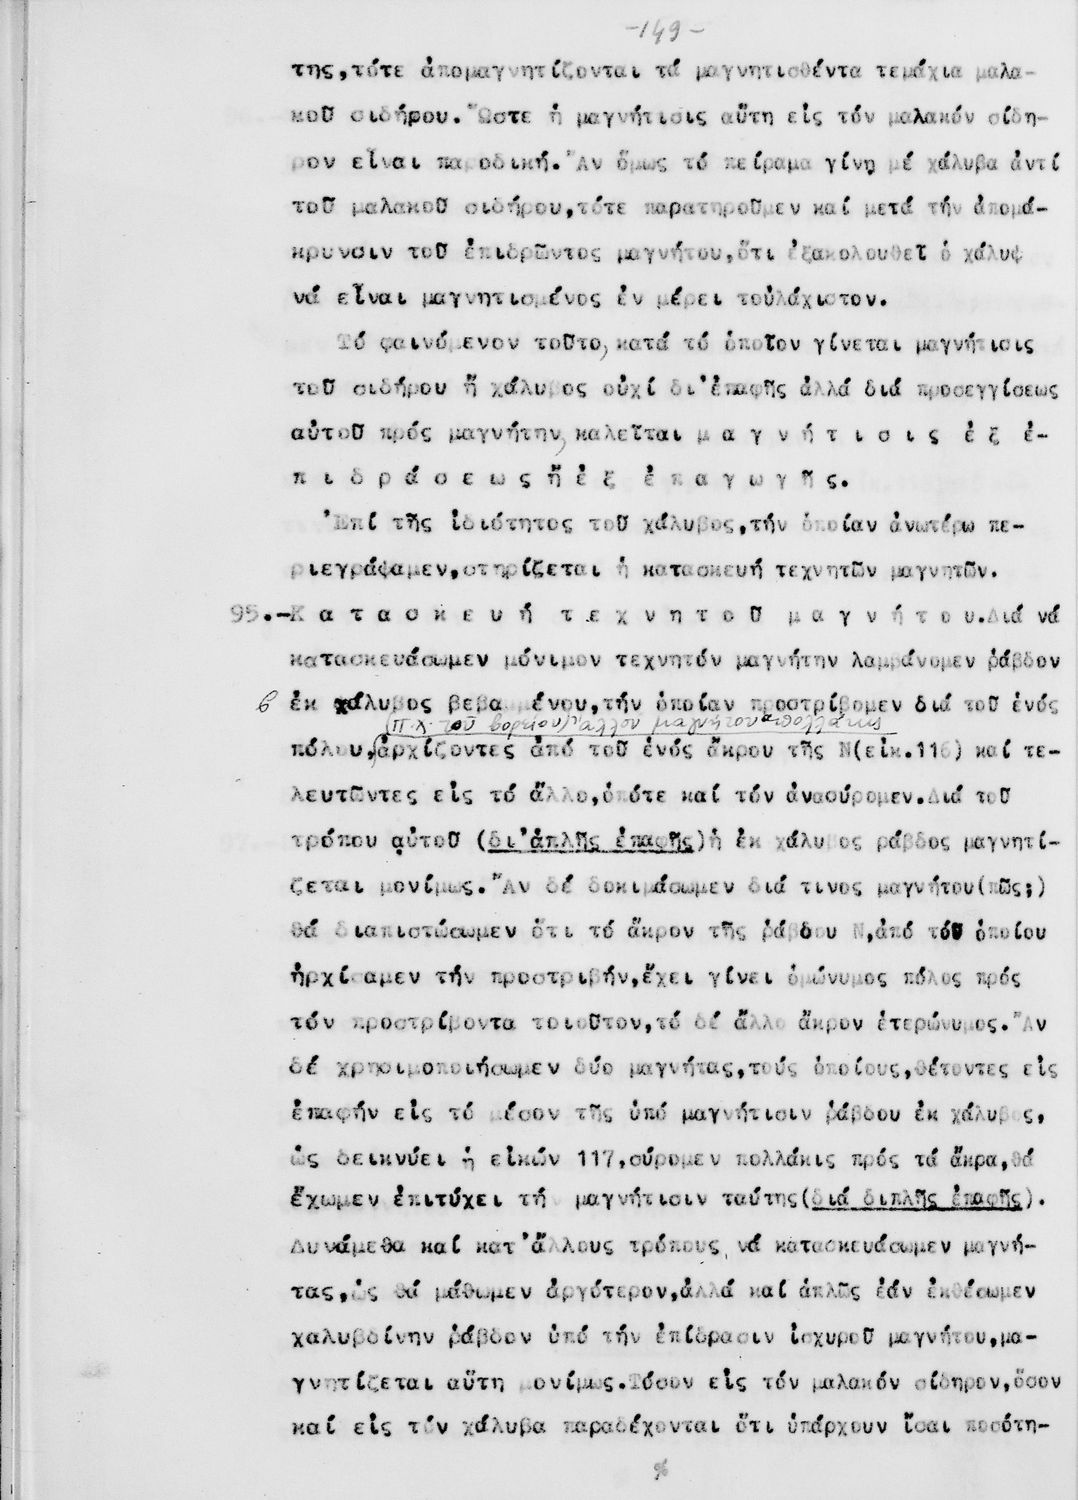 -149-
της,τότε ἀπομαγνητίζονται τά μαγνητισθέντα τεμάχια μαλα-
κοῦ σιδήρου. Ὥστε ἡ μαγνήτισις αὕτη εἰς τόν μαλακόν σίδη-
ρον εἶναι παροδική. Ἄν ὅμως τό πείραμα γίνῃ μέ χάλυβα ἀντί
τοῦ μαλακοῦ σιδήρου,τότε παρατηροῦμεν καί μετά τήν ἀπομά-
κρυνσιν τοῦ ἐπιδρῶντος μαγνήτου,ὅτι ἐξακολουθεῖ ὁ χάλυψ
νά εἶναι μαγνητισμένος ἐν μέρει τοὐλάχιστον.
Τό φαινόμενον τοῦτο, κατά τό ὁποῖον γίνεται μαγνήτισις
τοῦ σιδήρου ἤ χάλυβος οὐχί δι'ἐπαφῆς ἀλλά διά προσεγγίσεως
αὐτοῦ πρός μαγνήτην, καλεῖται μ α γ ν ή τ ι σ ι ς ἐ ξ ἐ-
π ι δ ρ ά σ ε ω ς ἤ ἐ ξ ἐ π α γ ω γ ῆ ς.
Ἐπί τῆς ἰδιότητος τοῦ χάλυβος,τήν ὁποίαν ἀνωτέρω πε-
ριεγράψαμεν,στηρίζεται ἡ κατασκευή τεχνητῶν μαγνητῶν.
95.-Κ α τ α σ κ ε υ ή τ ε χ ν η τ ο ῦ μ α γ ν ή τ ο υ.Διά νά
κατασκευάσωμεν μόνιμον τεχνητόν μαγνήτην λαμβάνομεν ῥάβδον
ἐκ χάλυβος βεβαμμένου,τήν ὁποίαν προστρίβομεν διά τοῦ ἑνός
(π.χ. τοῦ βορείου) ἄλλου μαγνήτου πολλάκις
πόλου, ἀρχίζοντες ἀπό τοῦ ἑνός ἄκρου τῆς Ν(εἰκ.116) καί τε-
λευτῶντες εἰς τό ἄλλο,ὁπότε καί τόν ἀνασύρομεν.Διά τοῦ
τρόπου αὐτοῦ (δι'ἁπλῆς ἐπαφῆς)ἡ ἐκ χάλυβος ῥάβδος μαγνητί-
ζεται μονίμως. Ἄν δέ δοκιμάσωμεν διά τινος μαγνήτου(πῶς;)
θά διαπιστώσωμεν ὅτι τό ἄκρον τῆς ῥάβδου Ν,ἀπό τοῦ ὁποίου
ἠρχίσαμεν τήν προστριβήν,ἔχει γίνει ὁμώνυμος πόλος πρός
τόν προστρίβοντα τοιοῦτον,τό δέ ἄλλο ἄκρον ἑτερώνυμος. Ἄν
δέ χρησιμοποιήσωμεν δύο μαγνήτας,τούς ὁποίους,θέτοντες εἰς
ἐπαφήν εἰς τό μέσον τῆς ὑπό μαγνήτισιν ῥάβδου ἐκ χάλυβος,
ὡς δεικνύει ἡ εἰκών 117,σύρομεν πολλάκις πρός τά ἄκρα,θά
ἔχωμεν ἐπιτύχει τή μαγνήτισιν ταύτης(διά διπλῆς ἐπαφῆς).
Δυνάμεθα καί κατ'ἄλλους τρόπους, νά κατασκευάσωμεν μαγνή-
τας,ὡς θά μάθωμεν ἀργότερον,ἀλλά καί ἁπλῶς ἐάν ἐκθέσωμεν
χαλυβδίνην ῥάβδον ὑπό τήν ἐπίδρασιν ἰσχυροῦ μαγνήτου,μα-
γνητίζεται αὕτη μονίμως.Τόσον εἰς τόν μαλακόν σίδηρον,ὅσον
καί εἰς τόν χάλυβα παραδέχονται ὅτι ὑπάρχουν ἴσαι ποσότη-